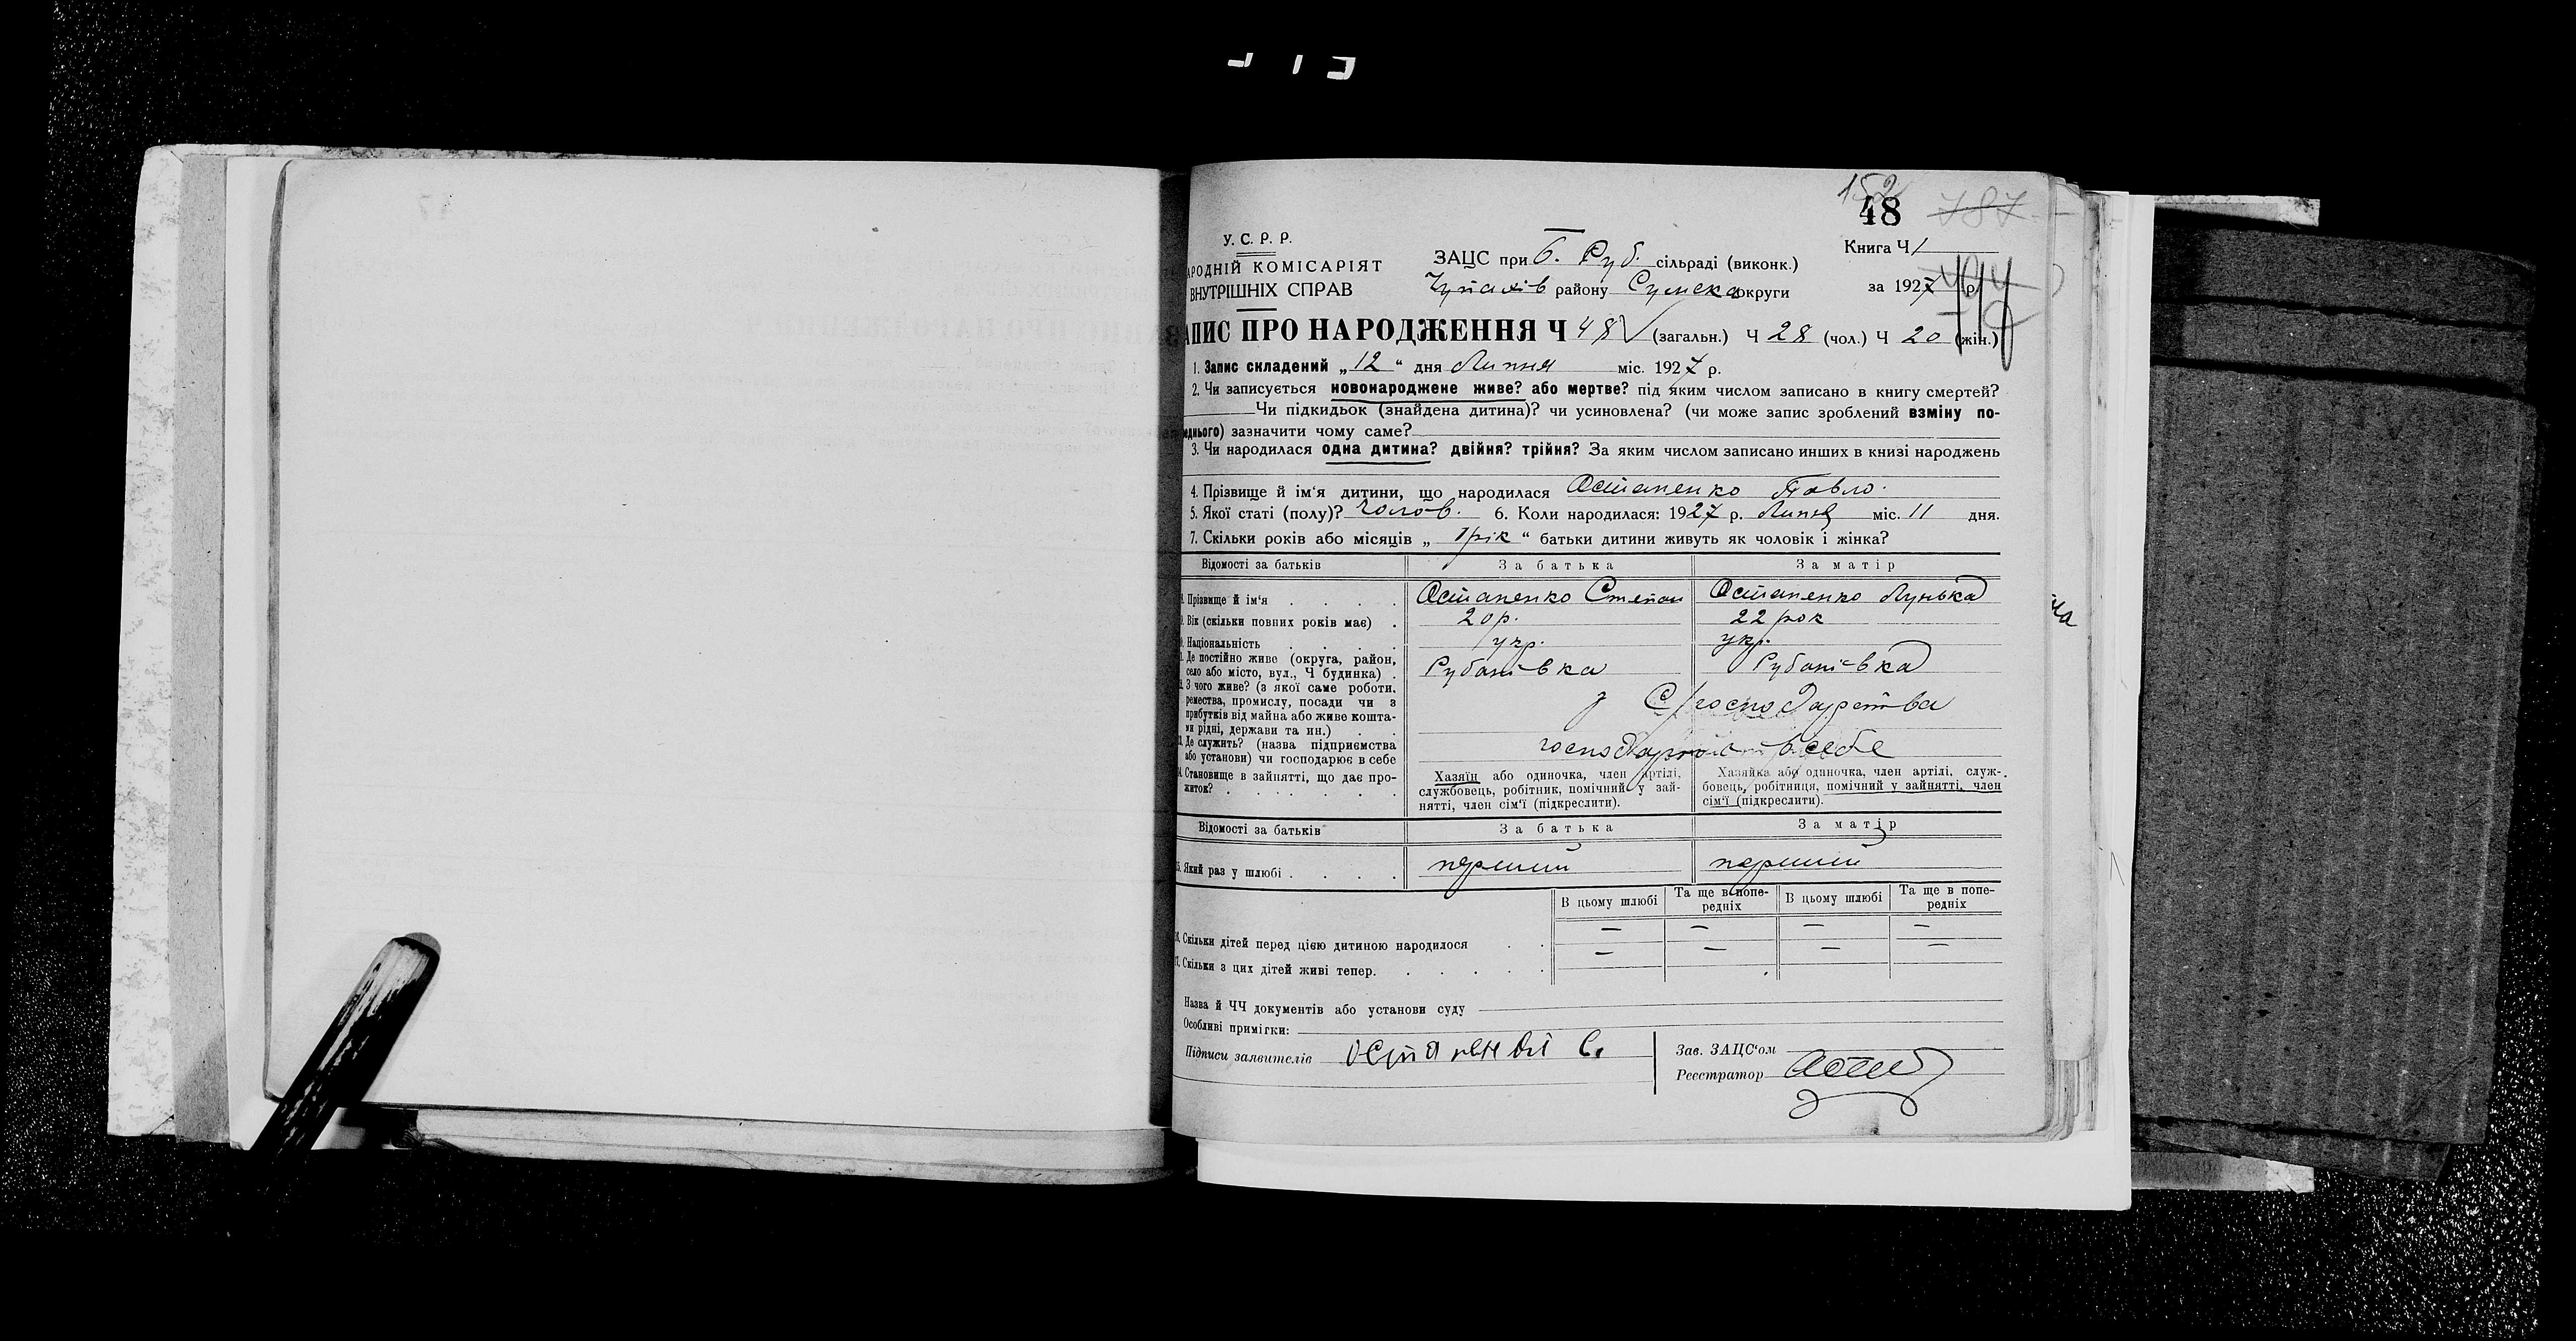 152
48 787
У. С. Р. Р.
АРОДНІЙ КОМІСАРІЯТ
ВНУТРІШНІХ СПРАВ
ЗАЦС при Б. Руб. сільраді (виконк.)
Чупахів району Сумська округи
Книга Ч 1
за 1927 р.
АПИС ПРО НАРОДЖЕННЯ Ч 48 (загальн.) Ч 28 (чол.) Ч 20 (жін.)
1. Запис складений „12“ дня Липня міс. 1927 р.
2. Чи записується новонароджене живе? або мертве? під яким числом записано в книгу смертей?
Чи підкидьок (знайдена дитина)? чи усиновлена? (чи може запис зроблений взміну по-
еднього) зазначити чому саме?
3. Чи народилася одна дитина? двійня? трійня? За яким числом записано инших в книзі народжень
4. Прізвище й ім‘я дитини, що народилася Остапенко Павло.
5. Якої статі (полу)? чолов. 6. Коли народилася: 1927 р. Липня міс. 11 дня.
7. Скільки років або місяців „ 1 рік “ батьки дитини живуть як чоловік і жінка?
Відомості за батьків За батька За матір
Прізвище й ім‘я Остапенко Степан Остапенко Лунька
Вік (скільки повних років має) 20 р. 22 рок
Національність укр. укр.
Де постійно живе (округа, район,
село або місто, вул., Ч будинка) Рубанівка Рубанівка
З чого живе? (з якої саме роботи,
ремества, промислу, посади чи з
прибутків від майна або живе кошта-
ми рідні, держави та ин.) з С/господарства
Де служить? (назва підприємства
або установи) чи господарює в себе в себе
Становище в зайнятті, що дає про-
житток?
Хазяїн або одиночка, член артілі,
службовець, робітник, помічний у зай-
нятті, член сім‘ї (підкреслити).
Хазяйка або одиночка, член артілі, служ-
бовець, робітниця, помічний у зайнятті, член
сім‘ї (підкреслити).
Відомості за батьків За батька За матір
Який раз у шлюбі перший перший
В цьому шлюбі Та ще в попе-редніх В цьому шлюбі Та ще в попе-редніх
Скільки дітей перед цією дитиною народилося — — — —
Скільки з цих дітей живі тепер. — — — —
Назва й ЧЧ документів або установи суду
Особливі примітки:
Підписи заявителів С.
Зав. ЗАЦС‘ом
Реєстратор